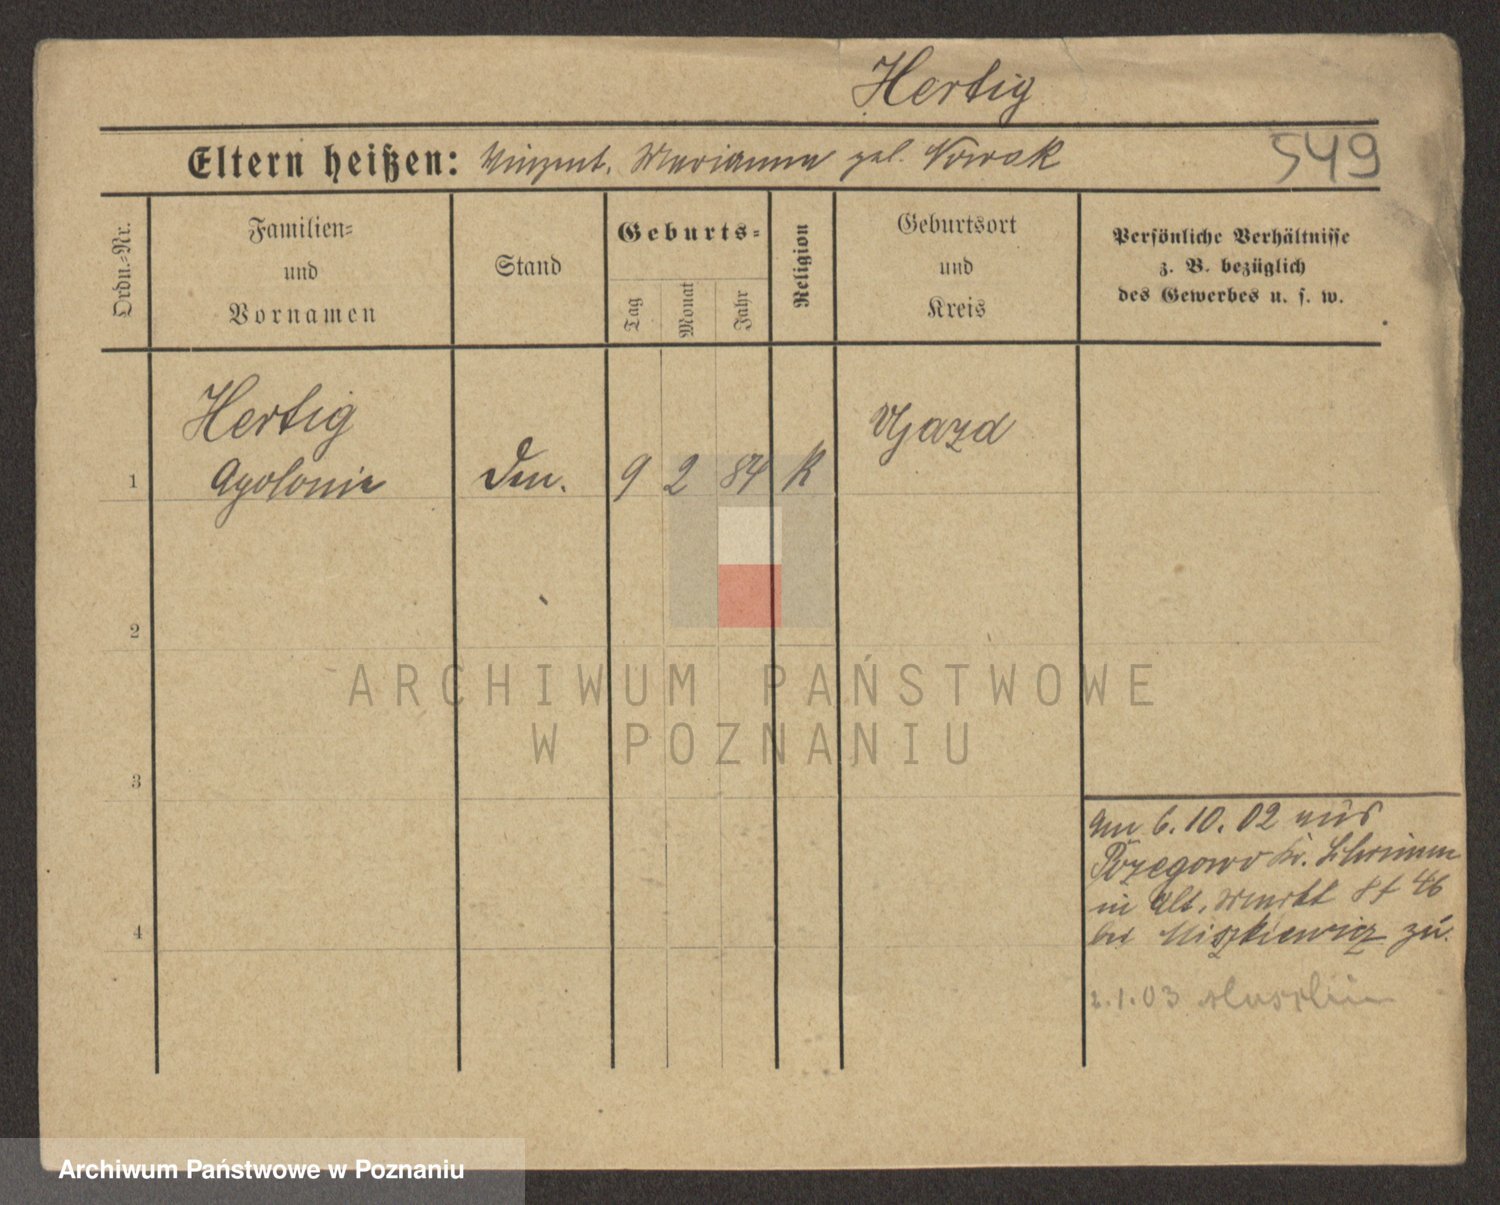 Hertig
Eltern heißen: Vinzent. Marianna gel. Nowak
549
Ordn.-Nr.
Familien-
und
Vornamen
Stand
Geburts-
Tag
Monat
Jahr
Religion
Geburtsort
und
Kreis
Persönliche Verhältnisse
z. B. bezüglich
des Gewerbes u. s. w.
Hertig
1 Apolonie
9 2 84 K
Ujazd
2
3
4
Am 6.10.02 aus
Pożegowo Kr. Schrimm
in Alt. Markt 8/ 46
bei Miszkiewicz zu.
2.1.03
ARCHIWUM PAŃSTWOWE
W POZNANIU
Archiwum Państwowe w Poznaniu